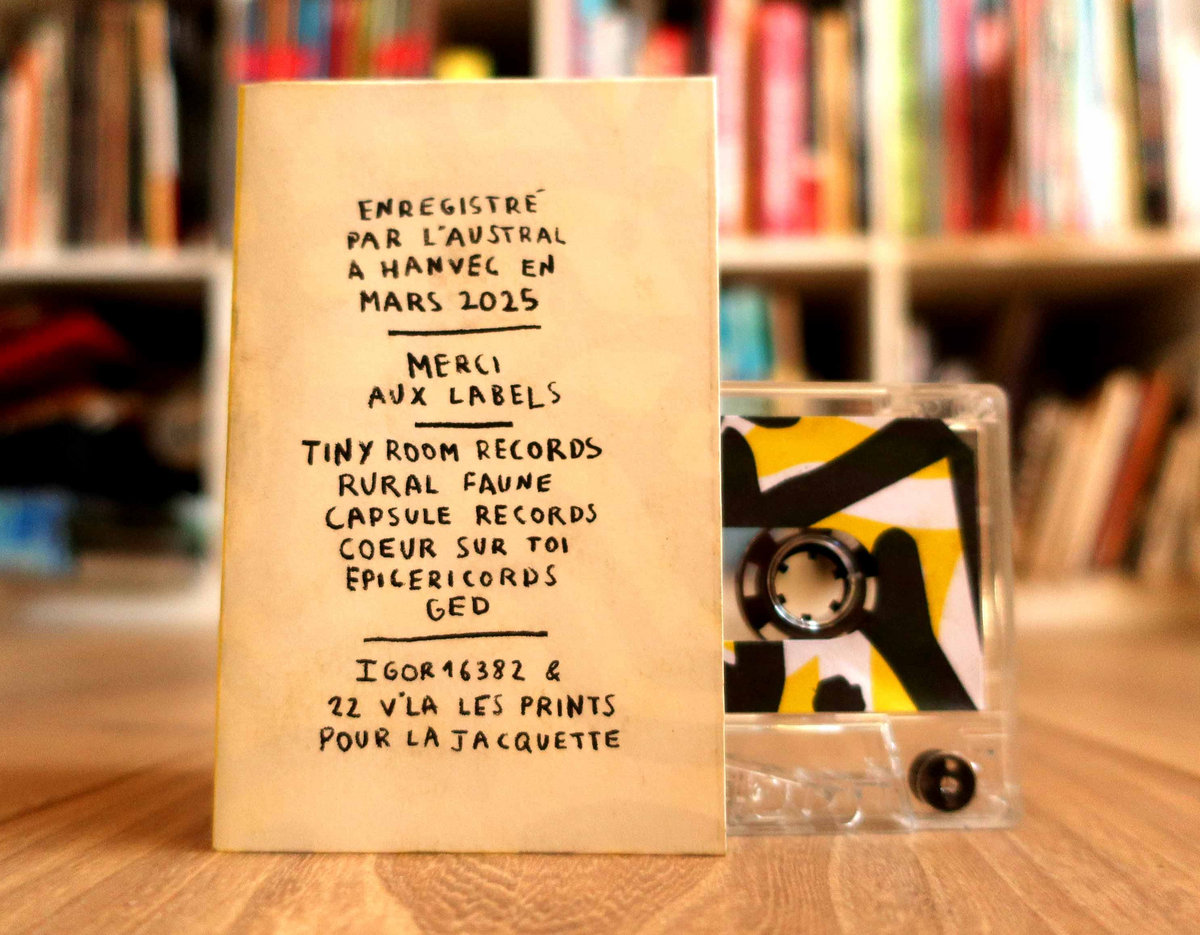 ENREGISTRÉ
PAR L'AUSTRAL
A HANVEC EN
MARS 2025
MERCI
AUX LABELS
TINY ROOM RECORDS
RURAL FAUNE
CAPSULE RECORDS
COEUR SUR TOI
EPICERICORDS
GED
IGOR16382 &
22 V'LA LES PRINTS
POUR LA JACQUETTE